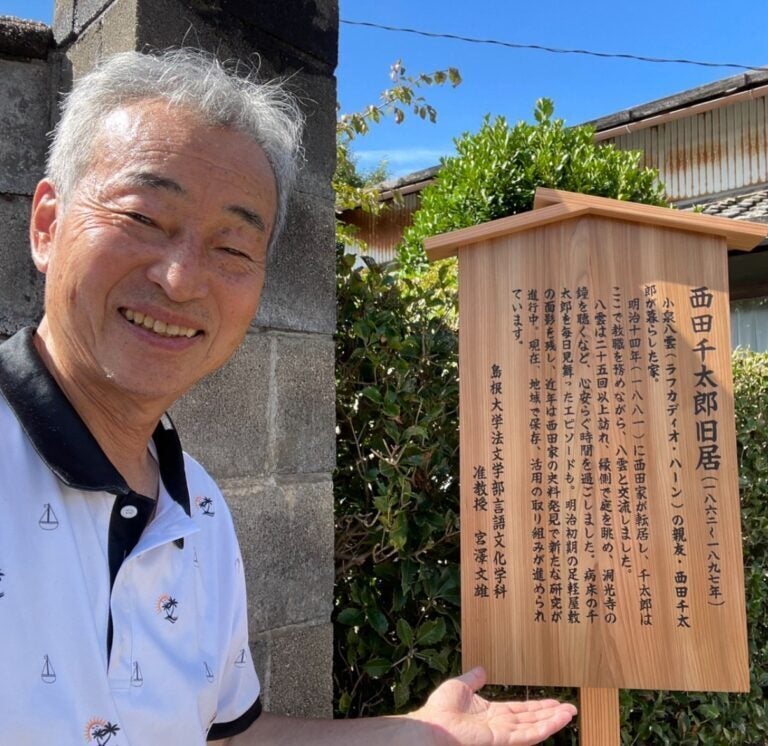 西田千太郎旧居(一八六二〜一八九七年)
小泉八雲(ラフカディオ・ハーン)の親友・西田千太
郎が暮らした家。
明治十四年(一八八一)に西田家が転居し、千太郎は
ここで教職を務めながら、八雲と交流しました。
八雲は二十五回以上訪れ、縁側で庭を眺め、洞光寺の
鐘を聴くなど、心安らぐ時間を過ごしました。病床の千
太郎を毎日見舞ったエピソードも。明治初期の足軽屋敷
の面影を残し、近年は西田家の史料発見で新たな研究が
進行中。現在、地域で保存、活用の取り組みが進められ
ています。
島根大学法文学部言語文化学科
准教授 宮澤文雄